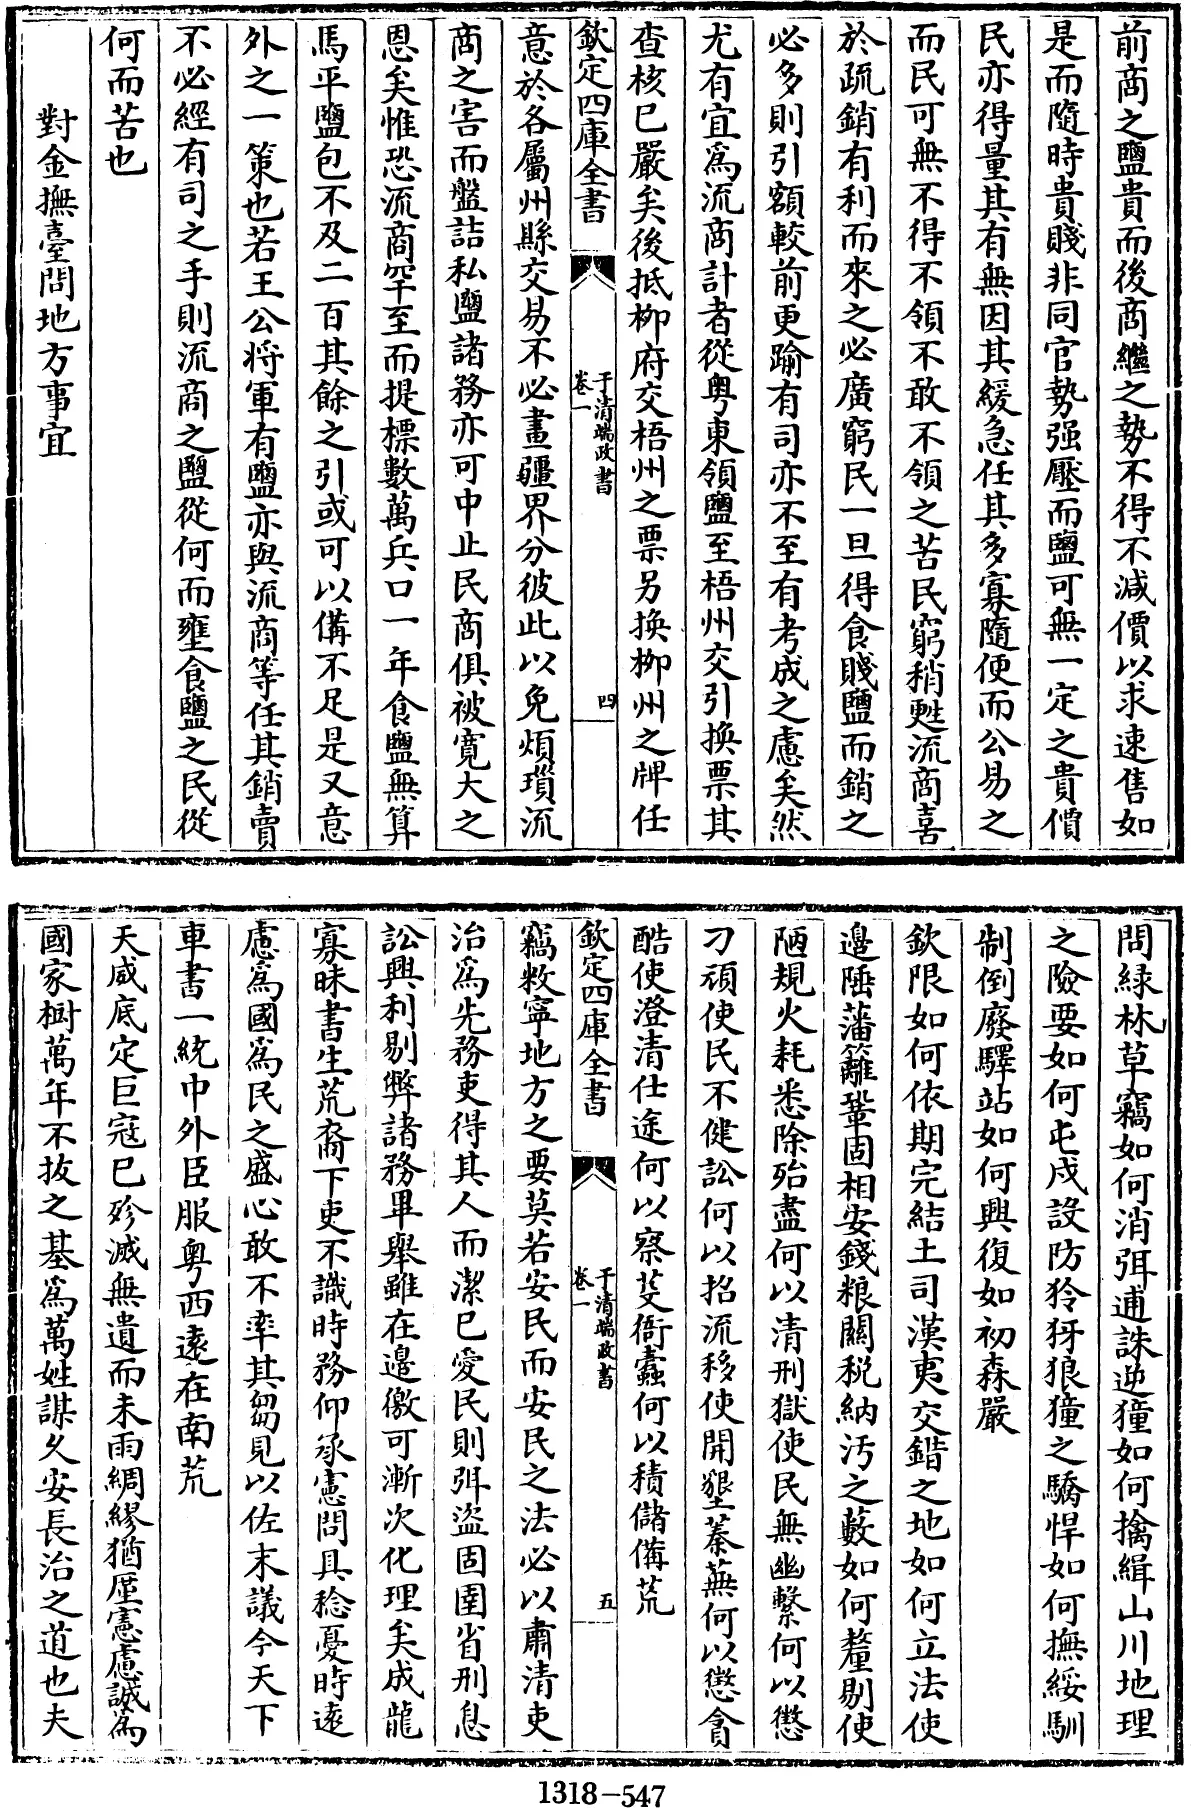 前商之鹽貴而後商繼之勢不得不減價以求速售如
是而隨時貴賤非同官勢强壓而鹽可無一定之貴價
民亦得量其有無因其緩急任其多寡隨便而公易之
而民可無不得不領不敢不領之苦民窮稍甦流商喜
於疏銷有利而來之必廣窮民一旦得食賤鹽而銷之
必多則引額較前更踰有司亦不至有考成之慮矣然
尤有宜爲流商計者從粤東領鹽至梧州交引換票其
查核已嚴矣後抵柳府交梧州之票另換柳州之牌任
欽定四庫全書
于清端政書
卷一
四
意於各屬州縣交易不必畫疆界分彼此以免煩瑣流
商之害而盤詰私鹽諸務亦可中止民商俱被寛大之
恩矣惟恐流商罕至而提標數萬兵口一年食鹽無算
馬平鹽包不及二百其餘之引或可以備不足是又意
外之一策也若王公将軍有鹽亦與流商等任其銷賣
不必經有司之手則流商之鹽從何而壅食鹽之民從
何而苦也
對金撫臺問地方事宜
問緑林草竊如何消弭逋誅逆獞如何擒緝山川地理
之險要如何屯戍設防狑犽狼獞之驕悍如何撫綏馴
制倒廢驛站如何興復如初森嚴
欽限如何依期完結土司漢夷交錯之地如何立法使
邉陲藩籬鞏固相安錢粮關税納汚之藪如何釐剔使
陋規火耗悉除殆盡何以清刑獄使民無幽繫何以懲
刁頑使民不健訟何以招流移使開墾蓁蕪何以懲貪
酷使澄清仕途何以察芟衙蠹何以積儲備荒
欽定四庫全書
于清端政書
卷一
五
竊敉寧地方之要莫若安民而安民之法必以肅清吏
治爲先務吏得其人而潔已愛民則弭盜固圉省刑息
訟興利剔弊諸務畢舉雖在邉徼可漸次化理矣成龍
寡昧書生荒裔下吏不識時務仰承憲問具稔憂時逺
慮爲國爲民之盛心敢不率其芻見以佐末議今天下
車書一統中外臣服粤西逺在南荒
天威底定巨冦已殄滅無遺而未雨綢繆猶厪憲慮誠爲
國家樹萬年不拔之基爲萬姓謀久安長治之道也夫
1318-547